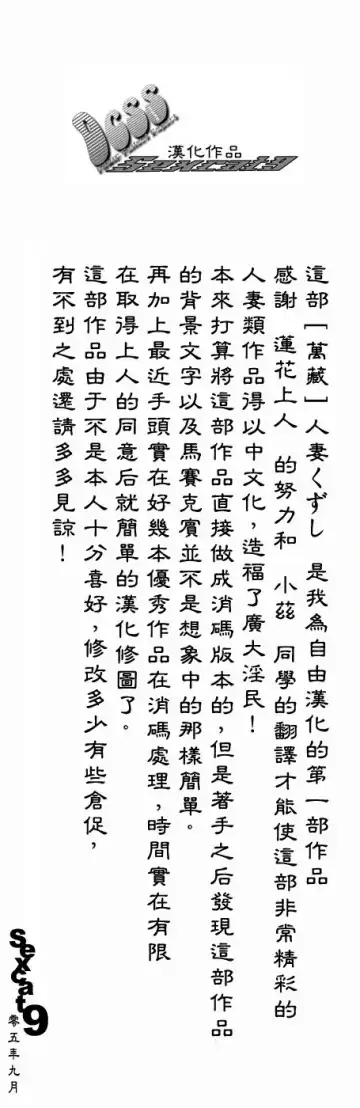 DCSS
漢化作品
Sexcat9
這部[萬藏]人妻くずし 是我為自由漢化的第一部作品
感謝 蓮花上人 的努力和 小茲 同學的翻譯才能使這部非常精彩的
人妻類作品得以中文化，造福了廣大淫民！
本來打算將這部作品直接做成消碼版本的，但是著手之后發現這部作品
的背景文字以及馬賽克賓並不是想象中的那樣簡單。
再加上最近手頭實在好幾本優秀作品在消碼處理，時間實在有限
在取得上人的同意后就簡單的漢化修圖了。
這部作品由于不是本人十分喜好，修改多少有些倉促，
有不到之處還請多多見諒！
Sexcat9
零五年九月